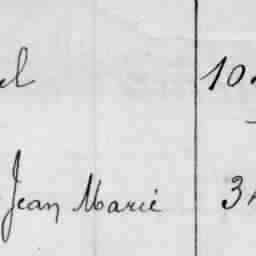 el 10
Jean Marie 3